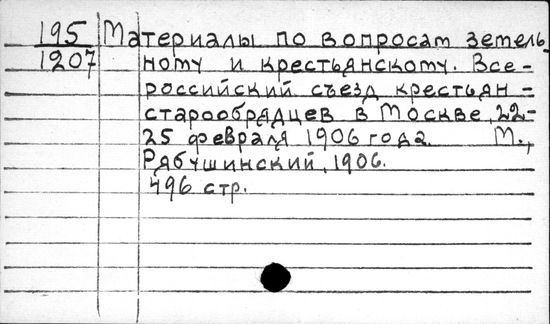 195 Материалы по вопросам земель-
1207 ному и крестьянскому. Все-
российский съезд крестьян -
старообрядцев в Москве, 22-
25 февраля 1906 года. М.,
Рябушинский, 1906.
496 стр.